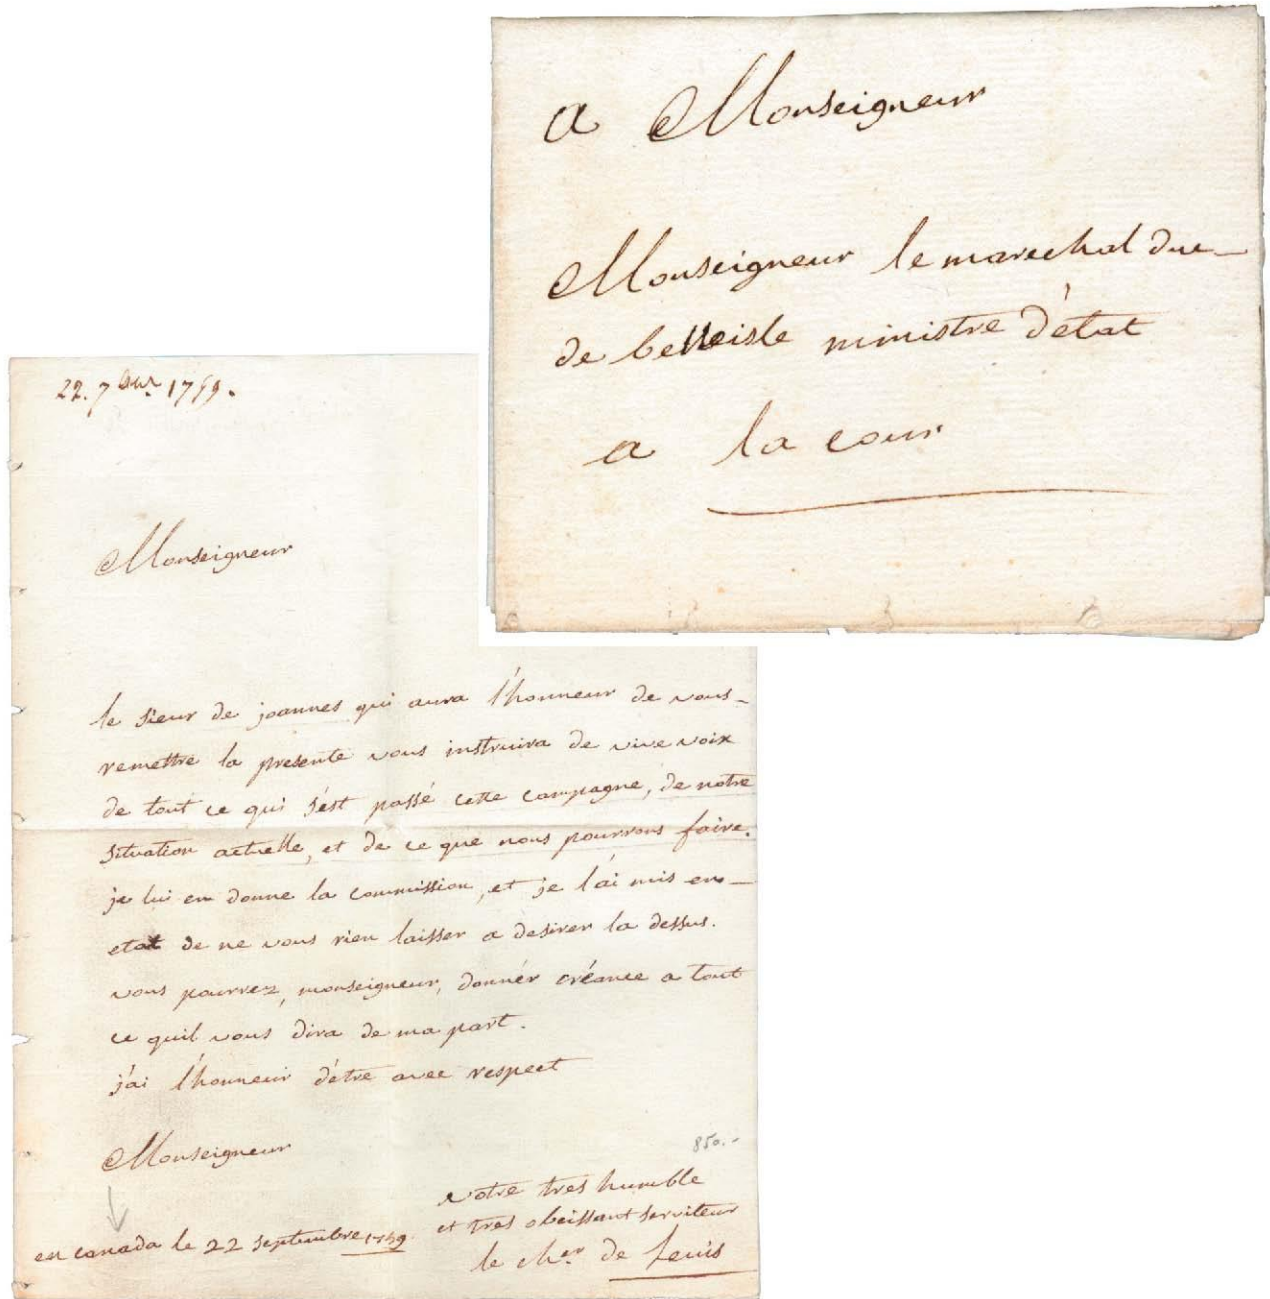 a Monseigneur
Monseigneur le marechal duc
de belleisle ministre d'état
a la cour
22. 7bre 1759.
Monseigneur
le sieur de joannes qui aura l'honneur de vous
remettre la presente vous instruira de vive voix
de tout ce qui s'est passé cette campagne, de notre
situation actuelle, et de ce que nous pourrons faire.
je lui en donne la commission, et je l'ai mis en
etat de ne vous rien laisser a desirer la dessus.
vous pourrez, monseigneur, donnér créance a tout
ce quil vous dira de ma part.
j'ai l'honneur d'etre avec respect
Monseigneur
850.-
votre tres humble
et tres obeissant serviteur
le cher de Levis
en canada le 22 septembre 1759